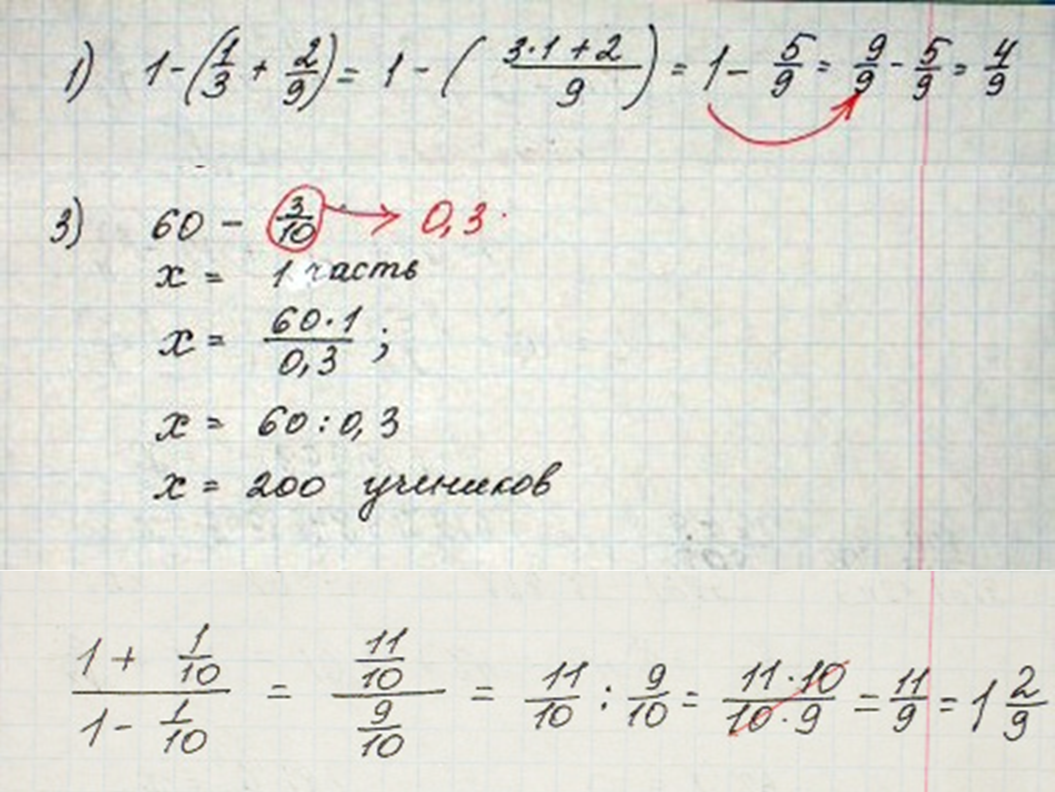 1) 1 - (1/3 + 2/9) = 1 - ( (3·1+2)/9 ) = 1 - 5/9 = 9/9 - 5/9 = 4/9
3) 60 - 3/10 → 0,3
x = 1 часть
x = (60·1)/(0,3) ;
x = 60 : 0,3
x = 200 учеников
(1 + 1/10)/(1 - 1/10) = (11/10)/(9/10) = 11/10 : 9/10 = (11·10)/(10·9) = 11/9 = 1 2/9